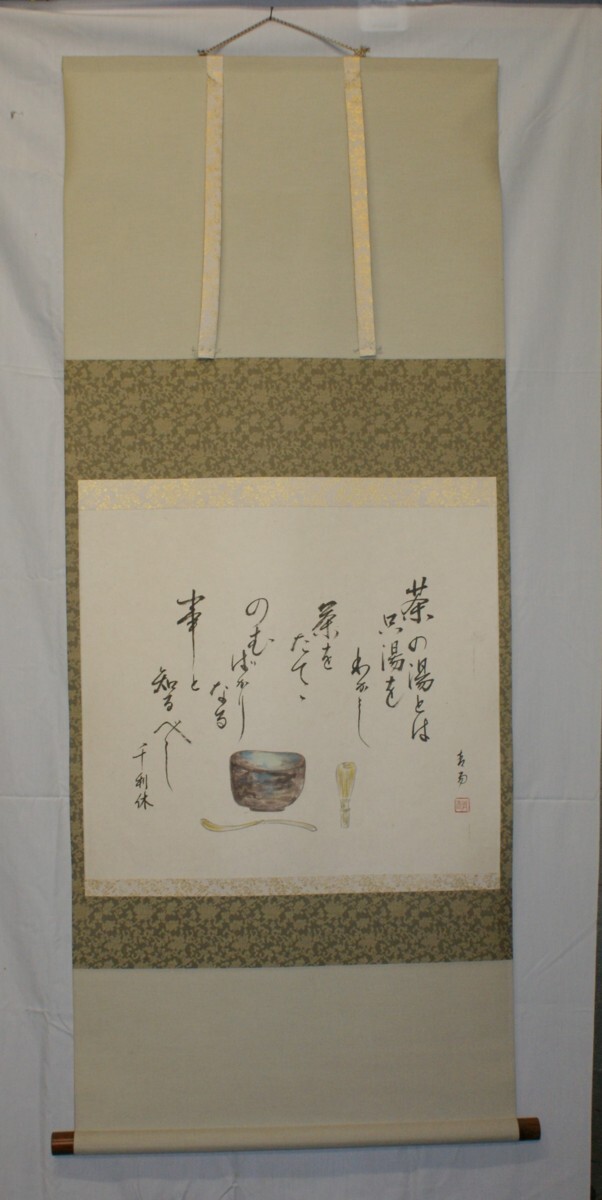 茶の湯とは
只湯を
わかし
茶を
たてゝ
のむばかり
なる
事と
知るべし
千利休